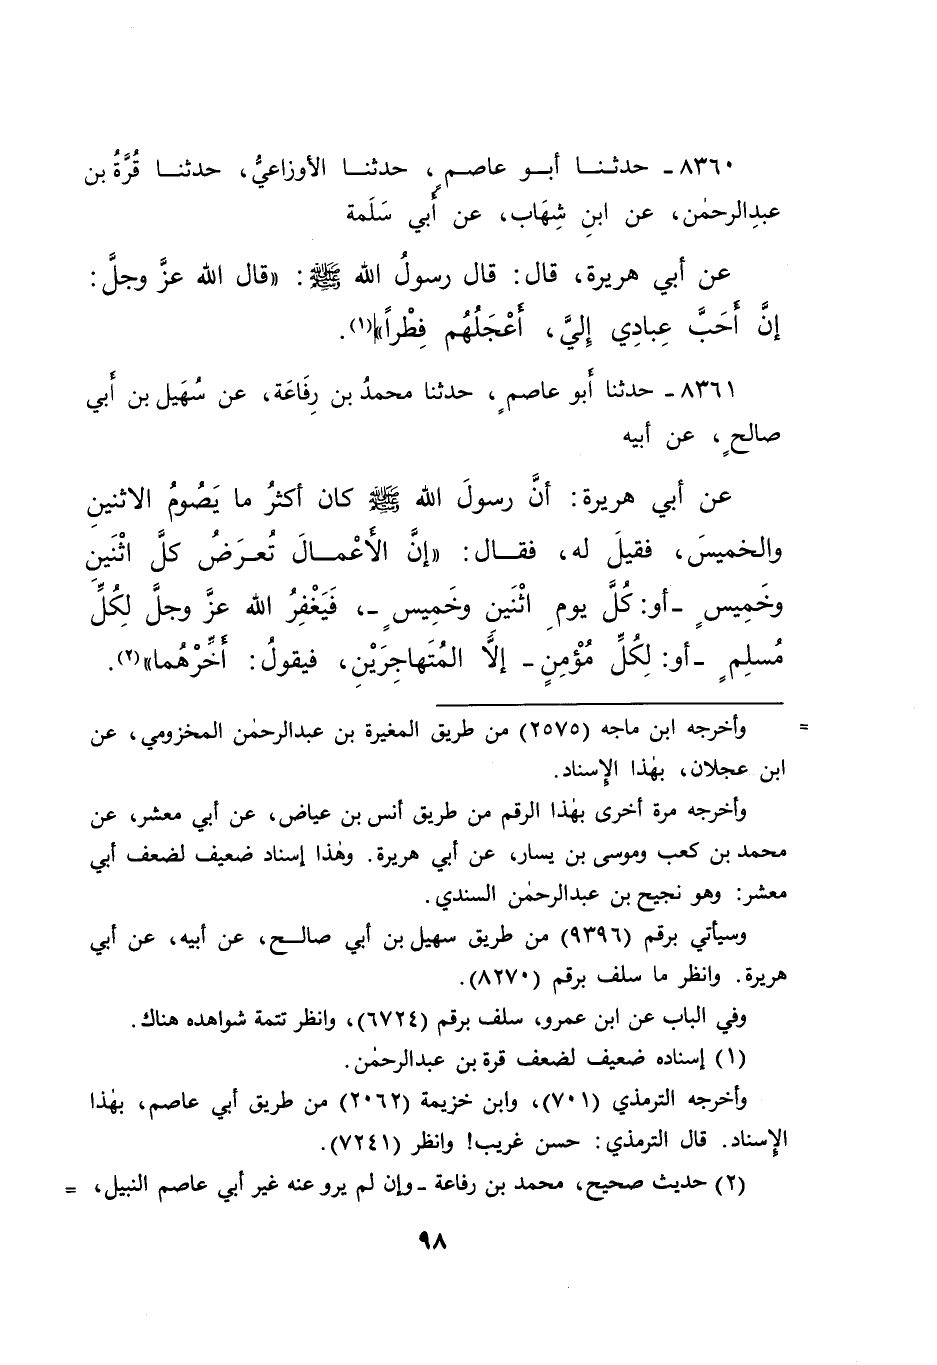 ٨٣٦٠ـ حدثنـا أبـو عاصـمٍ، حدثنـا الأوزاعيُّ، حدثنـا قُرَّةُ بن
عبدِالرحمٰن، عن ابنِ شِهَاب، عن أَبي سَلَمة
عن أبي هريرة، قال: قال رسولُ الله ﷺ: «قال الله عزَّ وجلَّ:
إنَّ أَحَبَّ عِبادِي إليَّ، أَعْجَلُهُم فِطْراً»(١).
٨٣٦١ـ حدثنا أَبو عاصمٍ، حدثنا محمدُ بن رِفَاعَة، عن سُهَيل بن أَبي
صالحٍ، عن أبيه
عن أبي هريرة: أنَّ رسولَ الله ﷺ كان أكثرُ ما يَصُومُ الاثنينِ
والخميسَ، فقيلَ له، فقـال: «إنَّ الأَعْمـالَ تُعرَضُ كلَّ اثْنَينِ
وخَمِيسٍ ـأو: كُلَّ يومِ اثْنَينِ وخَمِيسٍ ـ، فَيَغْفِرُ الله عزَّ وجلَّ لِكُلِّ
مُسلِمٍ ـأو: لِكُلِّ مُؤْمِنٍ ـ إلَّا المُتَهاجِرَيْنِ، فيقولُ: أَخِّرْهُما»(٢).
= وأخرجه ابن ماجه (٢٥٧٥) من طريق المغيرة بن عبدالرحمٰن المخزومي، عن
ابن عجلان، بهٰذا الإِسناد.
وأخرجه مرة أخرى بهٰذا الرقم من طريق أنس بن عياض، عن أبي معشر، عن
محمد بن كعب وموسى بن يسار، عن أبي هريرة. وهٰذا إسناد ضعيف لضعف أبي
معشر: وهو نجيح بن عبدالرحمٰن السندي.
وسيأتي برقم (٩٣٩٦) من طريق سهيل بن أبي صالـح، عن أبيه، عن أبي
هريرة. وانظر ما سلف برقم (٨٢٧٠).
وفي الباب عن ابن عمرو، سلف برقم (٦٧٢٤)، وانظر تتمة شواهده هناك.
(١) إسناده ضعيف لضعف قرة بن عبدالرحمٰن.
وأخرجه الترمذي (٧٠١)، وابن خزيمة (٢٠٦٢) من طريق أبي عاصم، بهٰذا
الإِسناد. قال الترمذي: حسن غريب! وانظر (٧٢٤١).
(٢) حديث صحيح، محمد بن رفاعة ـوإن لم يرو عنه غير أبي عاصم النبيل، =
٩٨